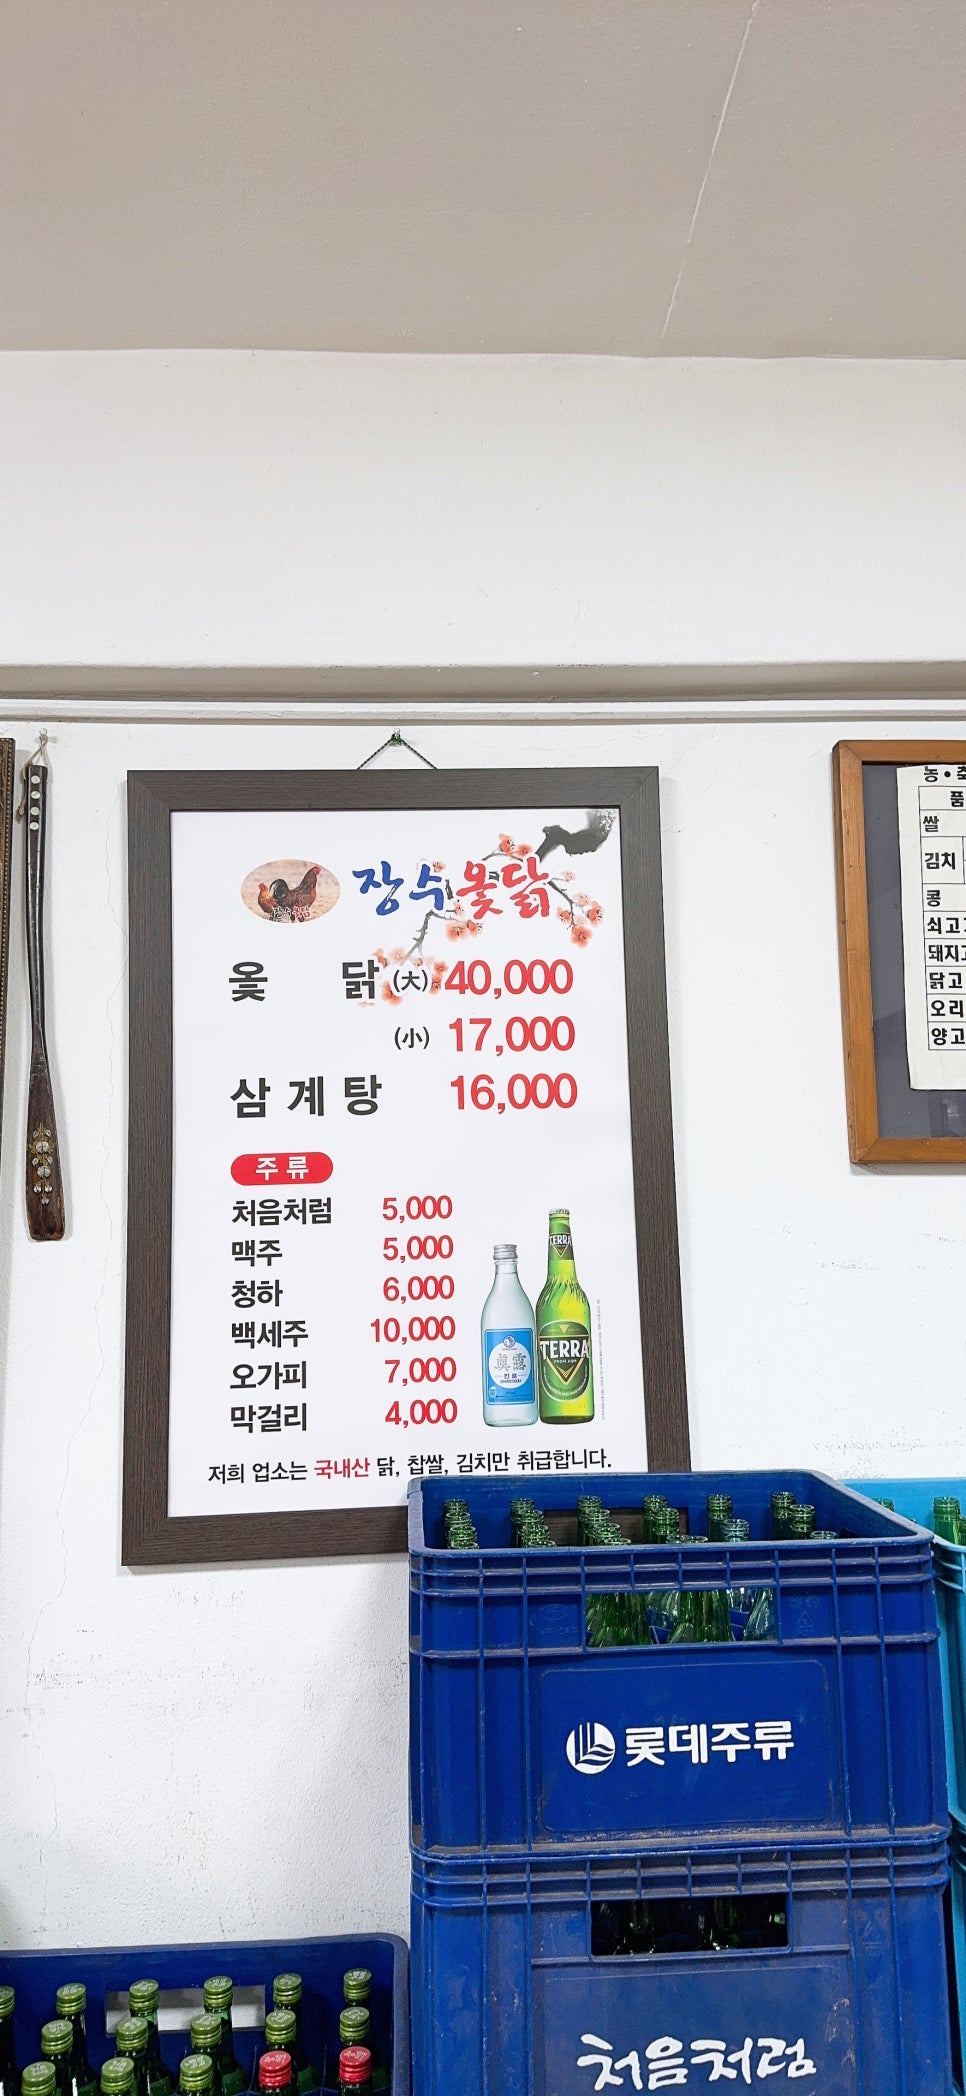 장수옻닭
장수옻닭
옻 닭 (大) 40,000
(小) 17,000
삼계탕 16,000
주류
처음처럼 5,000
맥주 5,000
청하 6,000
백세주 10,000
오가피 7,000
막걸리 4,000
TERRA
眞露
TERRA
저희 업소는 국내산 닭, 찹쌀, 김치만 취급합니다.
농·축
품
쌀
김치
콩
쇠고기
돼지고
닭고
오리
양고
롯데주류
처음처럼